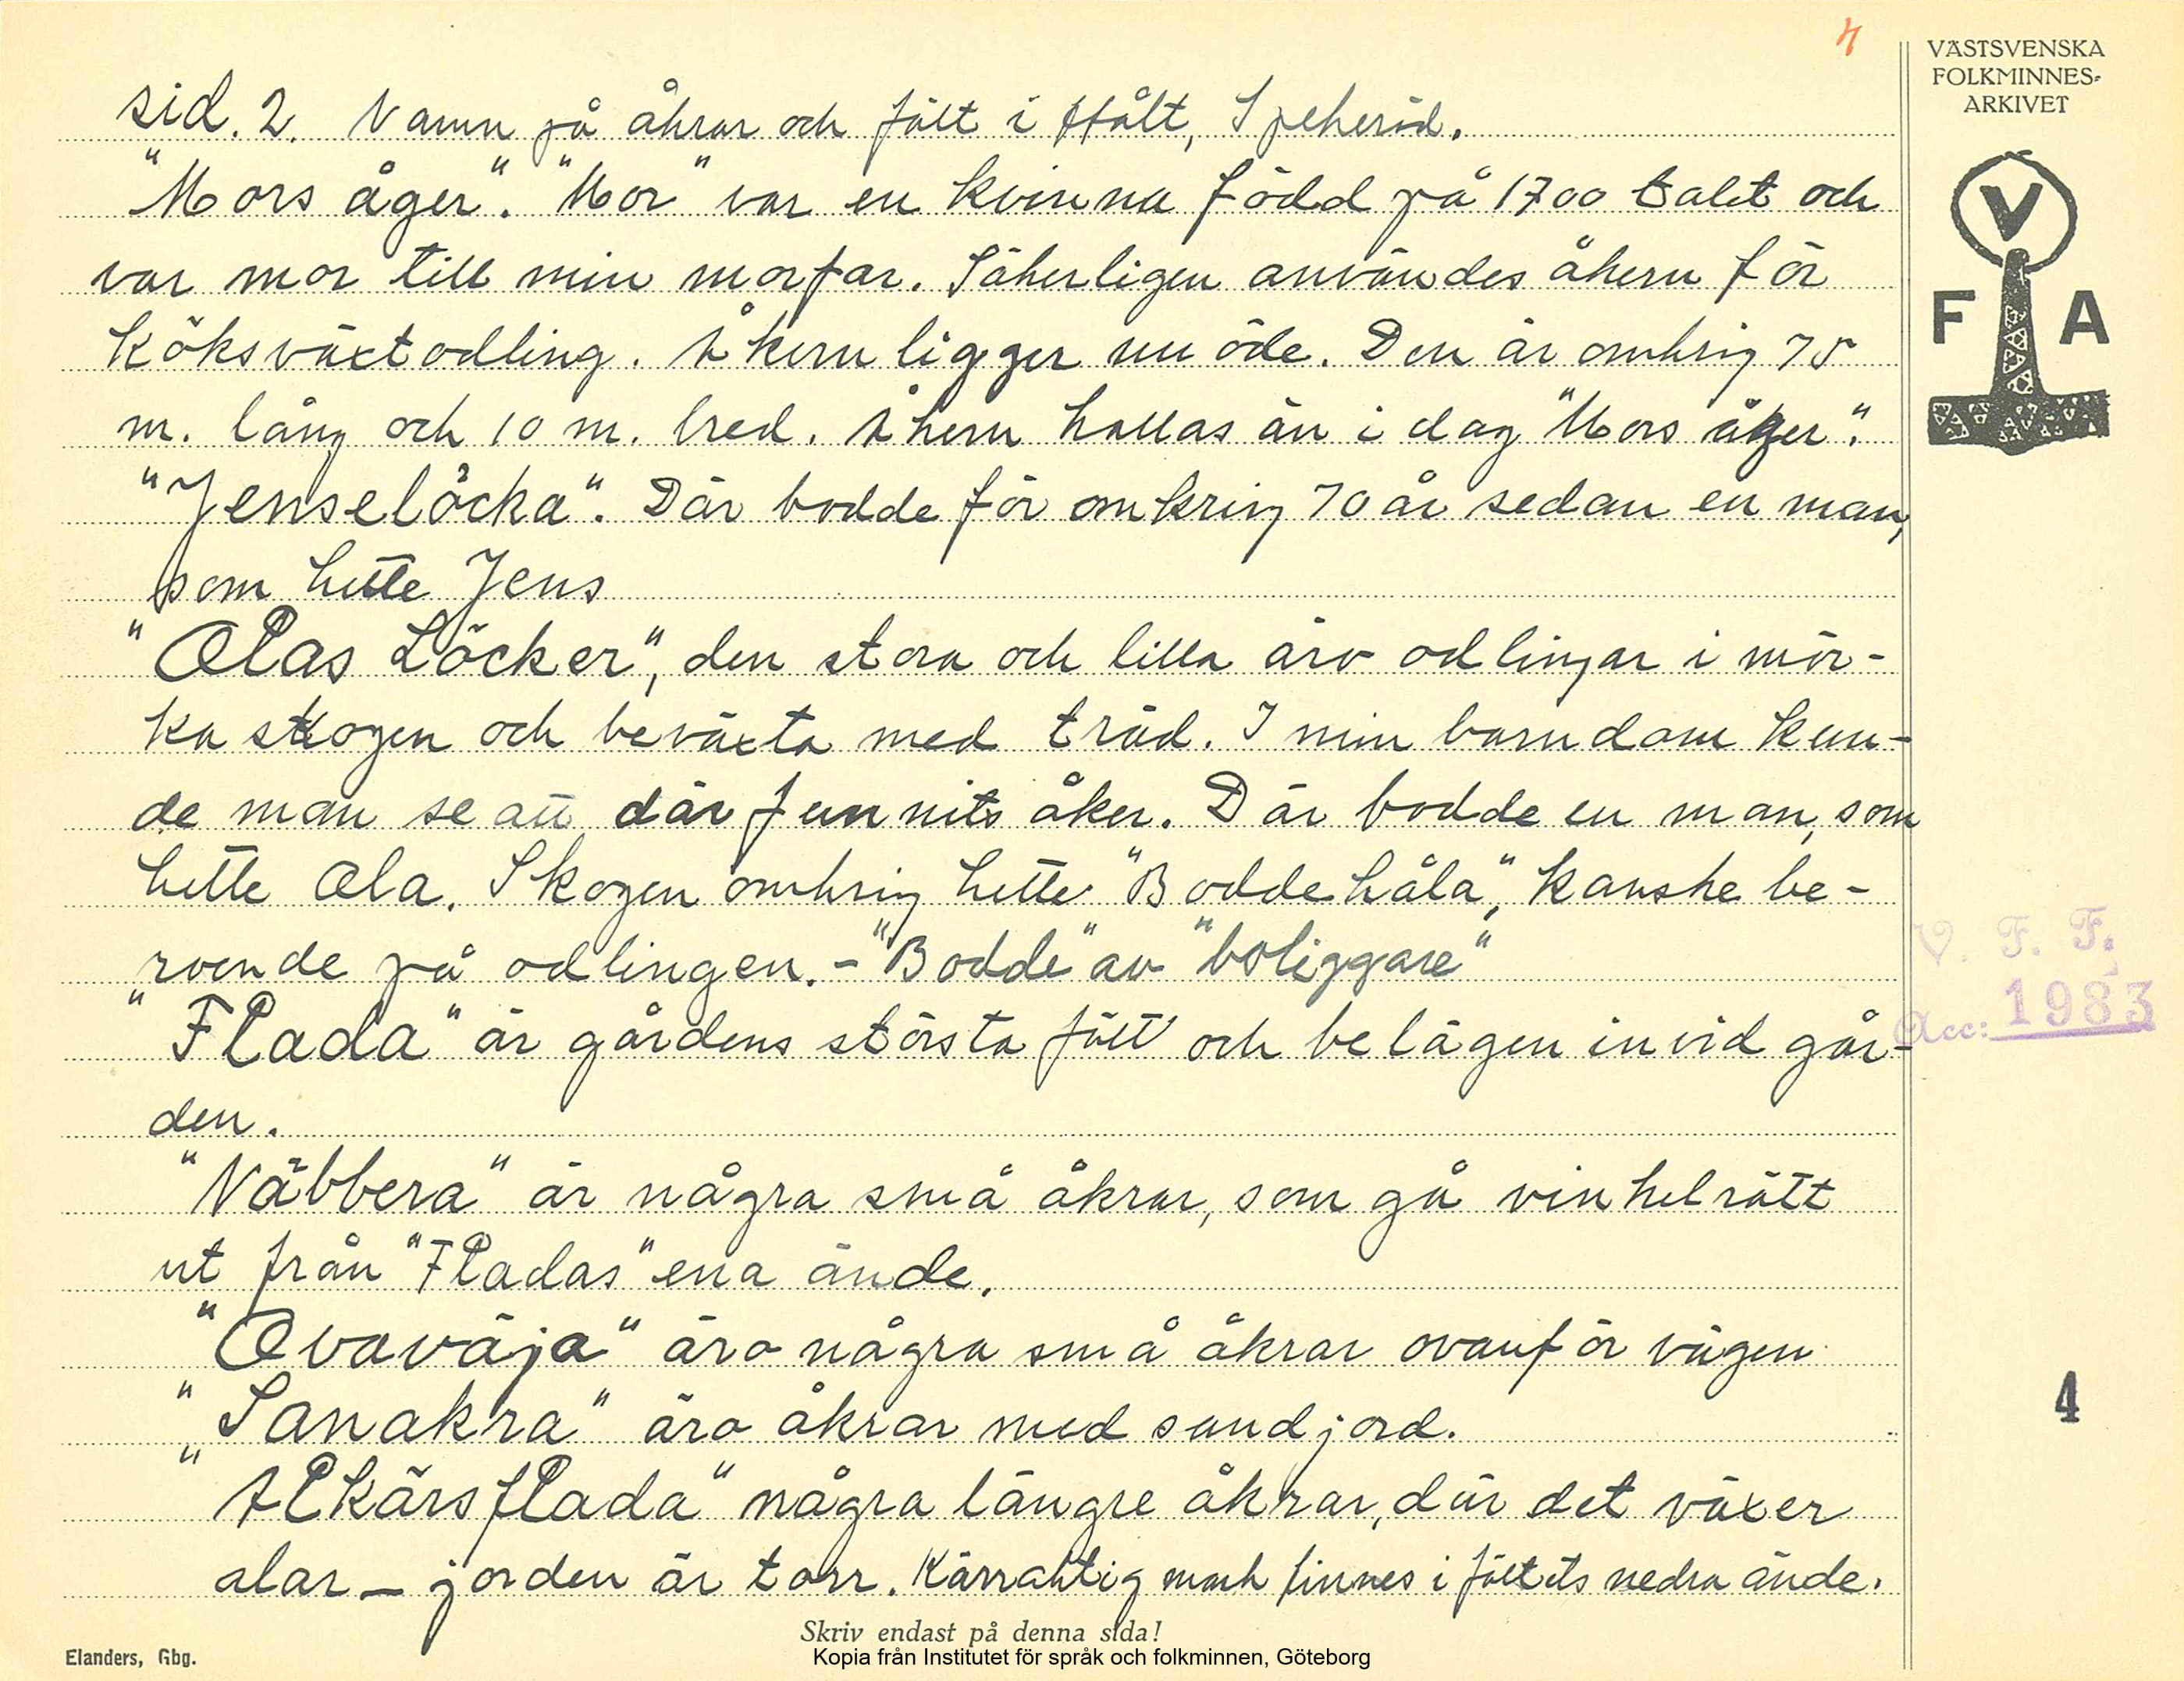 4
VÄSTSVENSKA
FOLKMINNES-
ARKIVET
V
F A
sid. 2. Namn på åkrar och fält i Hålt, Spekeröd.
"Mors åger". "Mor" var en kvinna född på 1700 talet och
var mor till min morfar. Säkerligen användes åkern för
köksväxtodling. Åkern ligger nu öde. Den är omkrig 75
m. lång och 10 m. bred. Åkern kallas än i dag "Mors åger".
"Jenselöcka". Där bodde för omkring 70 år sedan en man,
som hette Jens
"Olas Löcker", den stora och lilla äro odlingar i mör-
ka skogen och beväxta med träd. I min barndom kun-
de man se att där funnits åker. Där bodde en man, som
hette Ola. Skogen omkrig hette "Boddehåla", kanske be-
roende på odlingen. - "Bodde" av "boliggare"
"Flada" är gårdens största fält och belägen invid går-
den.
"Näbbera" är några små åkrar, som gå vinkelrätt
ut från "Fladas" ena ände.
"Ovaväja" äro några små åkrar ovanför vägen
"Sanakra" äro åkrar med sandjord.
"Alkärsflada" några längre åkrar, där det växer
alar – jorden är torr. Kärraktig mark finnes i fältets nedra ände.
V. F. F.
Acc: 1983
4
Skriv endast på denna sida!
Elanders, Gbg.
Kopia från Institutet för språk och folkminnen, Göteborg